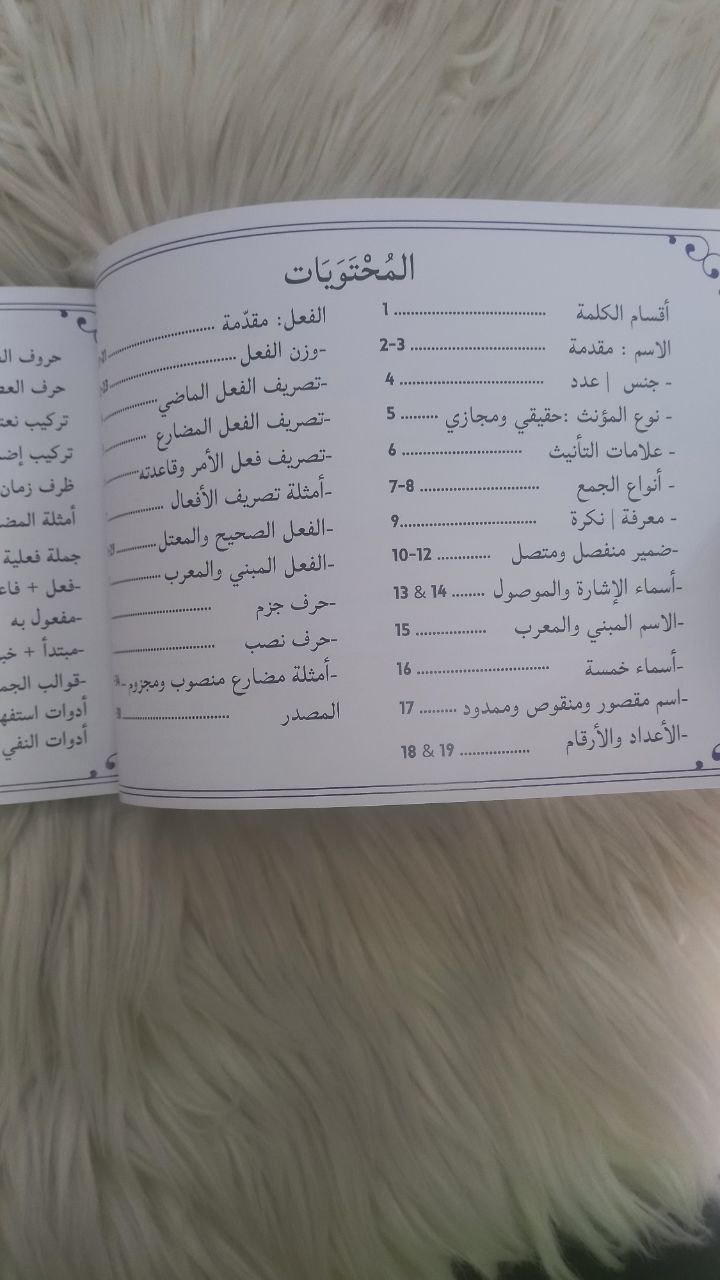 المُحْتَوَيَات
أقسام الكلمة ............ 1
الاسم : مقدمة ............ 2-3
- جنس | عدد ............ 4
- نوع المؤنث :حقيقي ومجازي ........ 5
- علامات التأنيث ............ 6
- أنواع الجمع ............ 7-8
- معرفة | نكرة ............ 9
-ضمير منفصل ومتصل ............ 10-12
-أسماء الإشارة والموصول ........ 13 & 14
-الاسم المبني والمعرب ............ 15
-أسماء خمسة ............ 16
-اسم مقصور ومنقوص وممدود ......... 17
-الأعداد والأرقام ............ 18 & 19
الفعل: مقدّمة ............
-وزن الفعل ............
-تصريف الفعل الماضي ............
-تصريف الفعل المضارع ............
-تصريف فعل الأمر وقاعدته ............
-أمثلة تصريف الأفعال ............
-الفعل الصحيح والمعتل ............
-الفعل المبني والمعرب ............
-حرف جزم ............
-حرف نصب ............
-أمثلة مضارع منصوب ومجزوم
المصدر ............
حروف
حرف
تركيب
تركيب
ظرف زمان
أمثلة
جملة فعلية
-فعل +
-مفعول به
-مبتدأ +
-قوالب
أدوات
أدوات النفي